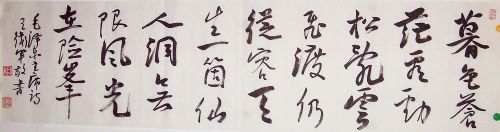 暮色蒼
茫看勁
松亂雲
飛渡仍
從容天
生一箇仙
人洞無
限風光
在險峯
毛澤東主席詩
王衛軍敬書